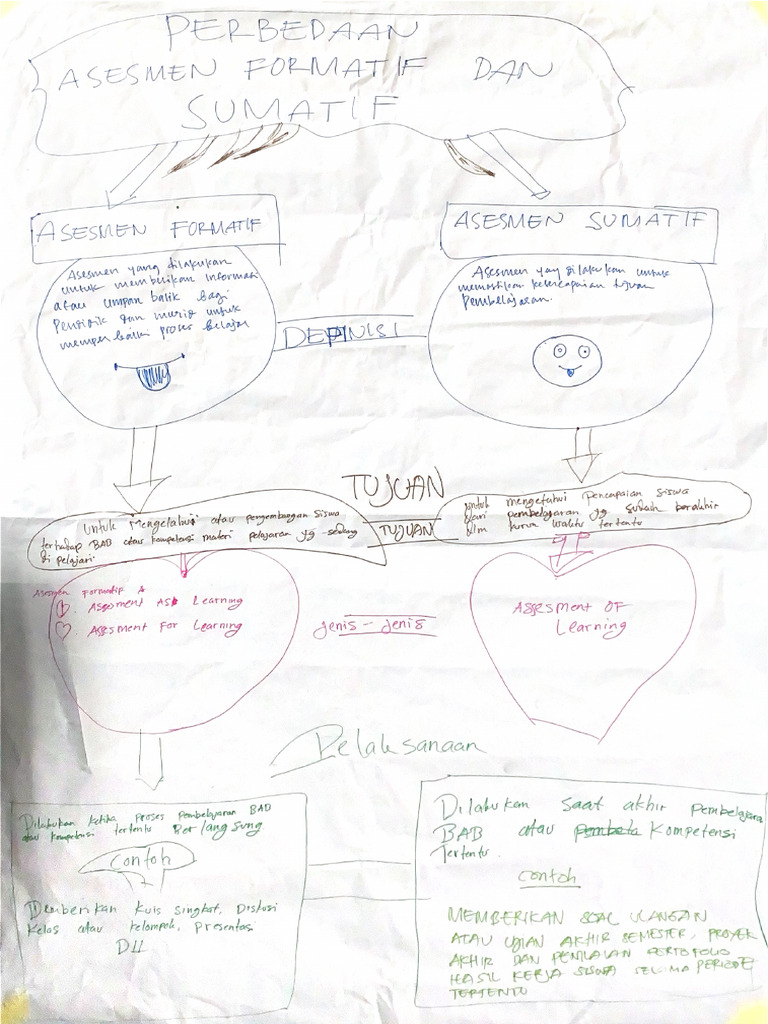 PERBEDAAN
ASESMEN FORMATIF DAN
SUMATIF
ASESMEN FORMATIF
Asesmen yang dilakukan
untuk memberikan informasi
atau umpan balik bagi
Pendidik dan murid untuk
memperbaiki proses belajar
DEFINISI
ASESMEN SUMATIF
Asesmen yang dilakukan untuk
memastikan ketercapaian tujuan
Pembelajaran.
TUJUAN
Untuk Mengetahui atau penyembangan Siswa
terhadap BAB atau kompetensi materi pelajaran yg sedang
di pelajari
TUJUAN
untuk mengetahui Pencapaian Siswa
dari pembelajaran yg sudah berakhir
dlm kurun waktu tertentu
Asesmen Formatif
Assesment As Learning
Assesment For Learning
Jenis - Jenis
ASSESMENT OF
Learning
Pelaksanaan
Dilakukan ketika proses pembelajaran BAB
atau kompetensi tertentu Berlangsung
contoh
Memberikan kuis singkat, Diskusi
Kelas atau kelompok, Presentasi
Dll
Dilakukan Saat akhir pembelajaran
BAB atau pembela Kompetensi
Tertentu.
contoh
MEMBERIKAN SOAL ULANGAN
ATAU UJIAN AKHIR SEMESTER, PROYEK
AKHIR DAN PENILAIAN PORTOFOLIO
HASIL KERJA SISWA SELAMA PERIODE
TERTENTU